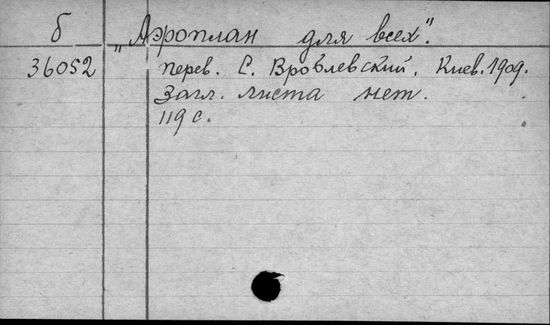 б „Аэроплан для всех".
36052 перев. С. Вровлевский. Киев. 1909.
Загл. листа нет.
119 с.